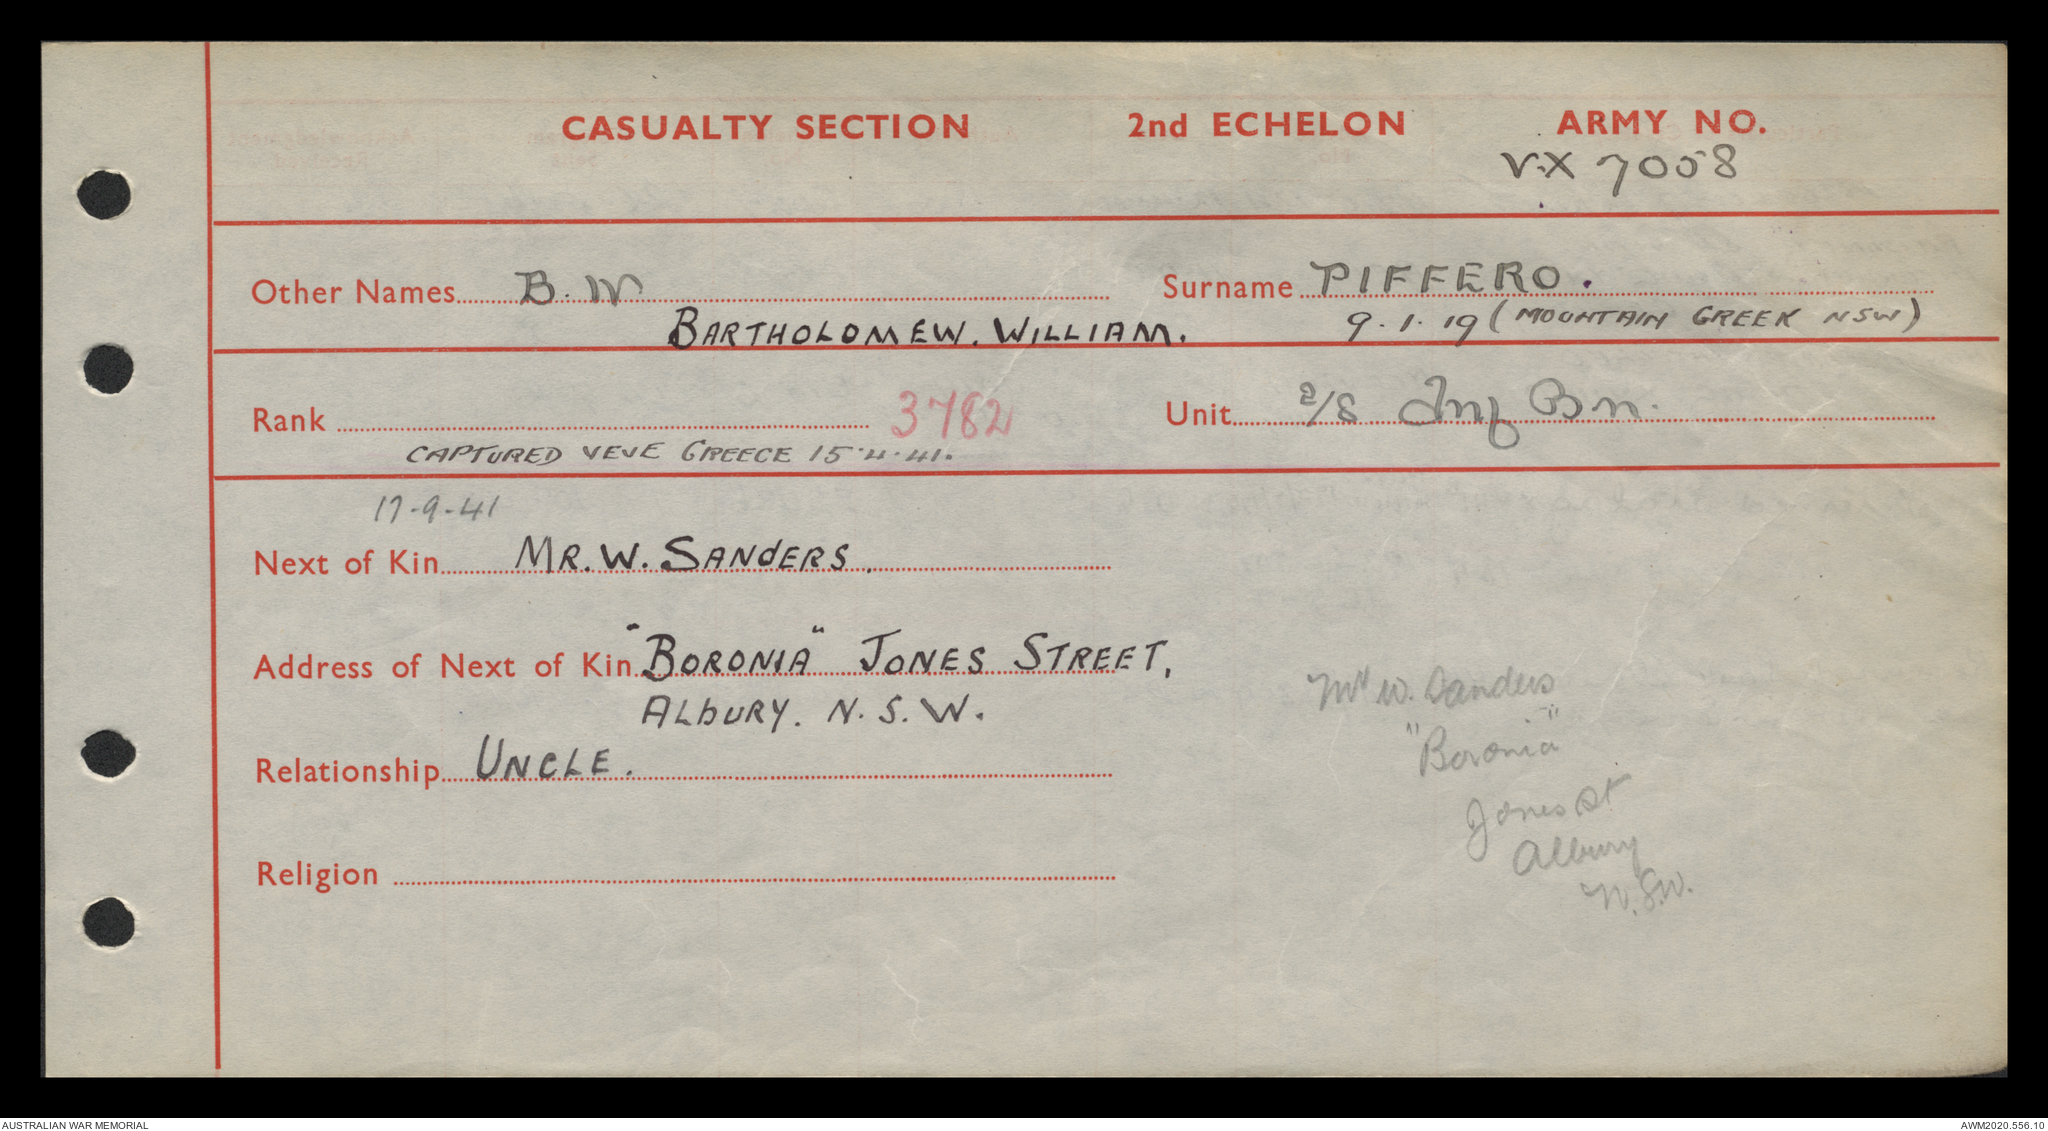 CASUALTY SECTION 2nd ECHELON ARMY NO.
VX 7058
Other Names B. W Surname PIFFERO.
BARTHOLOMEW. WILLIAM. 9.1.19 (MOUNTAIN CREEK NSW)
Rank 3782 Unit 2/8 Inf Bn.
CAPTURED VEVE GREECE 15.4.41.
17-9-41
Next of Kin MR. W. SANDERS.
Address of Next of Kin "BORONIA" JONES STREET,
ALBURY. N.S.W.
Relationship UNCLE.
Religion
Mr W. Sanders
"Boronia"
Jones St
Albury
N.S.W.
AUSTRALIAN WAR MEMORIAL AWM2020.556.10